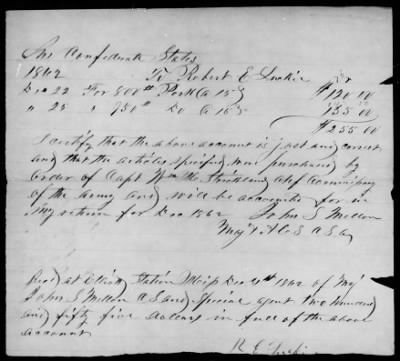 The Confederate States
1862 To Robert E Luckie Dr
Dec 22 For 800 lbs Pork @ 15¢ $120 00
" 25 " 900 lbs Do @ 15¢ 135 00
$255 00
I certify that the above account is just and correct
and that the articles specified were purchased by
order of Capt Wm H Strickland of Commissary
of the army and will be accounted for in
my return for Dec 1862 John S Mellon
Maj & A C S C S A
Recd at Station Miss Dec 31st 1862 of Maj
John S Mellon A C S and special agent two hundred
and fifty five dollars in full of the above
account
R E Luckie